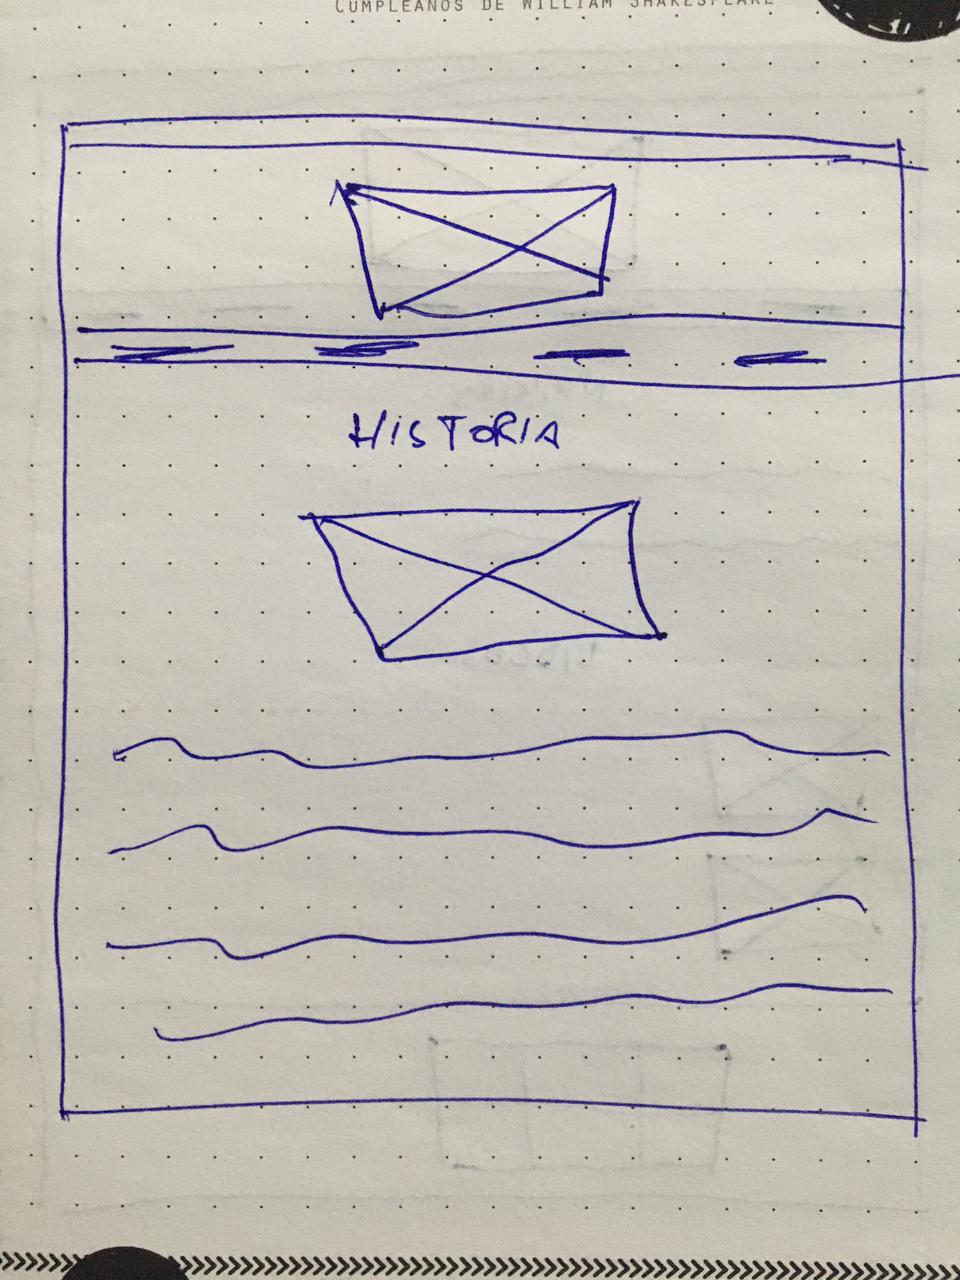 CUMPLEAÑOS DE WILLIAM SHAKESPEARE
HISTORIA